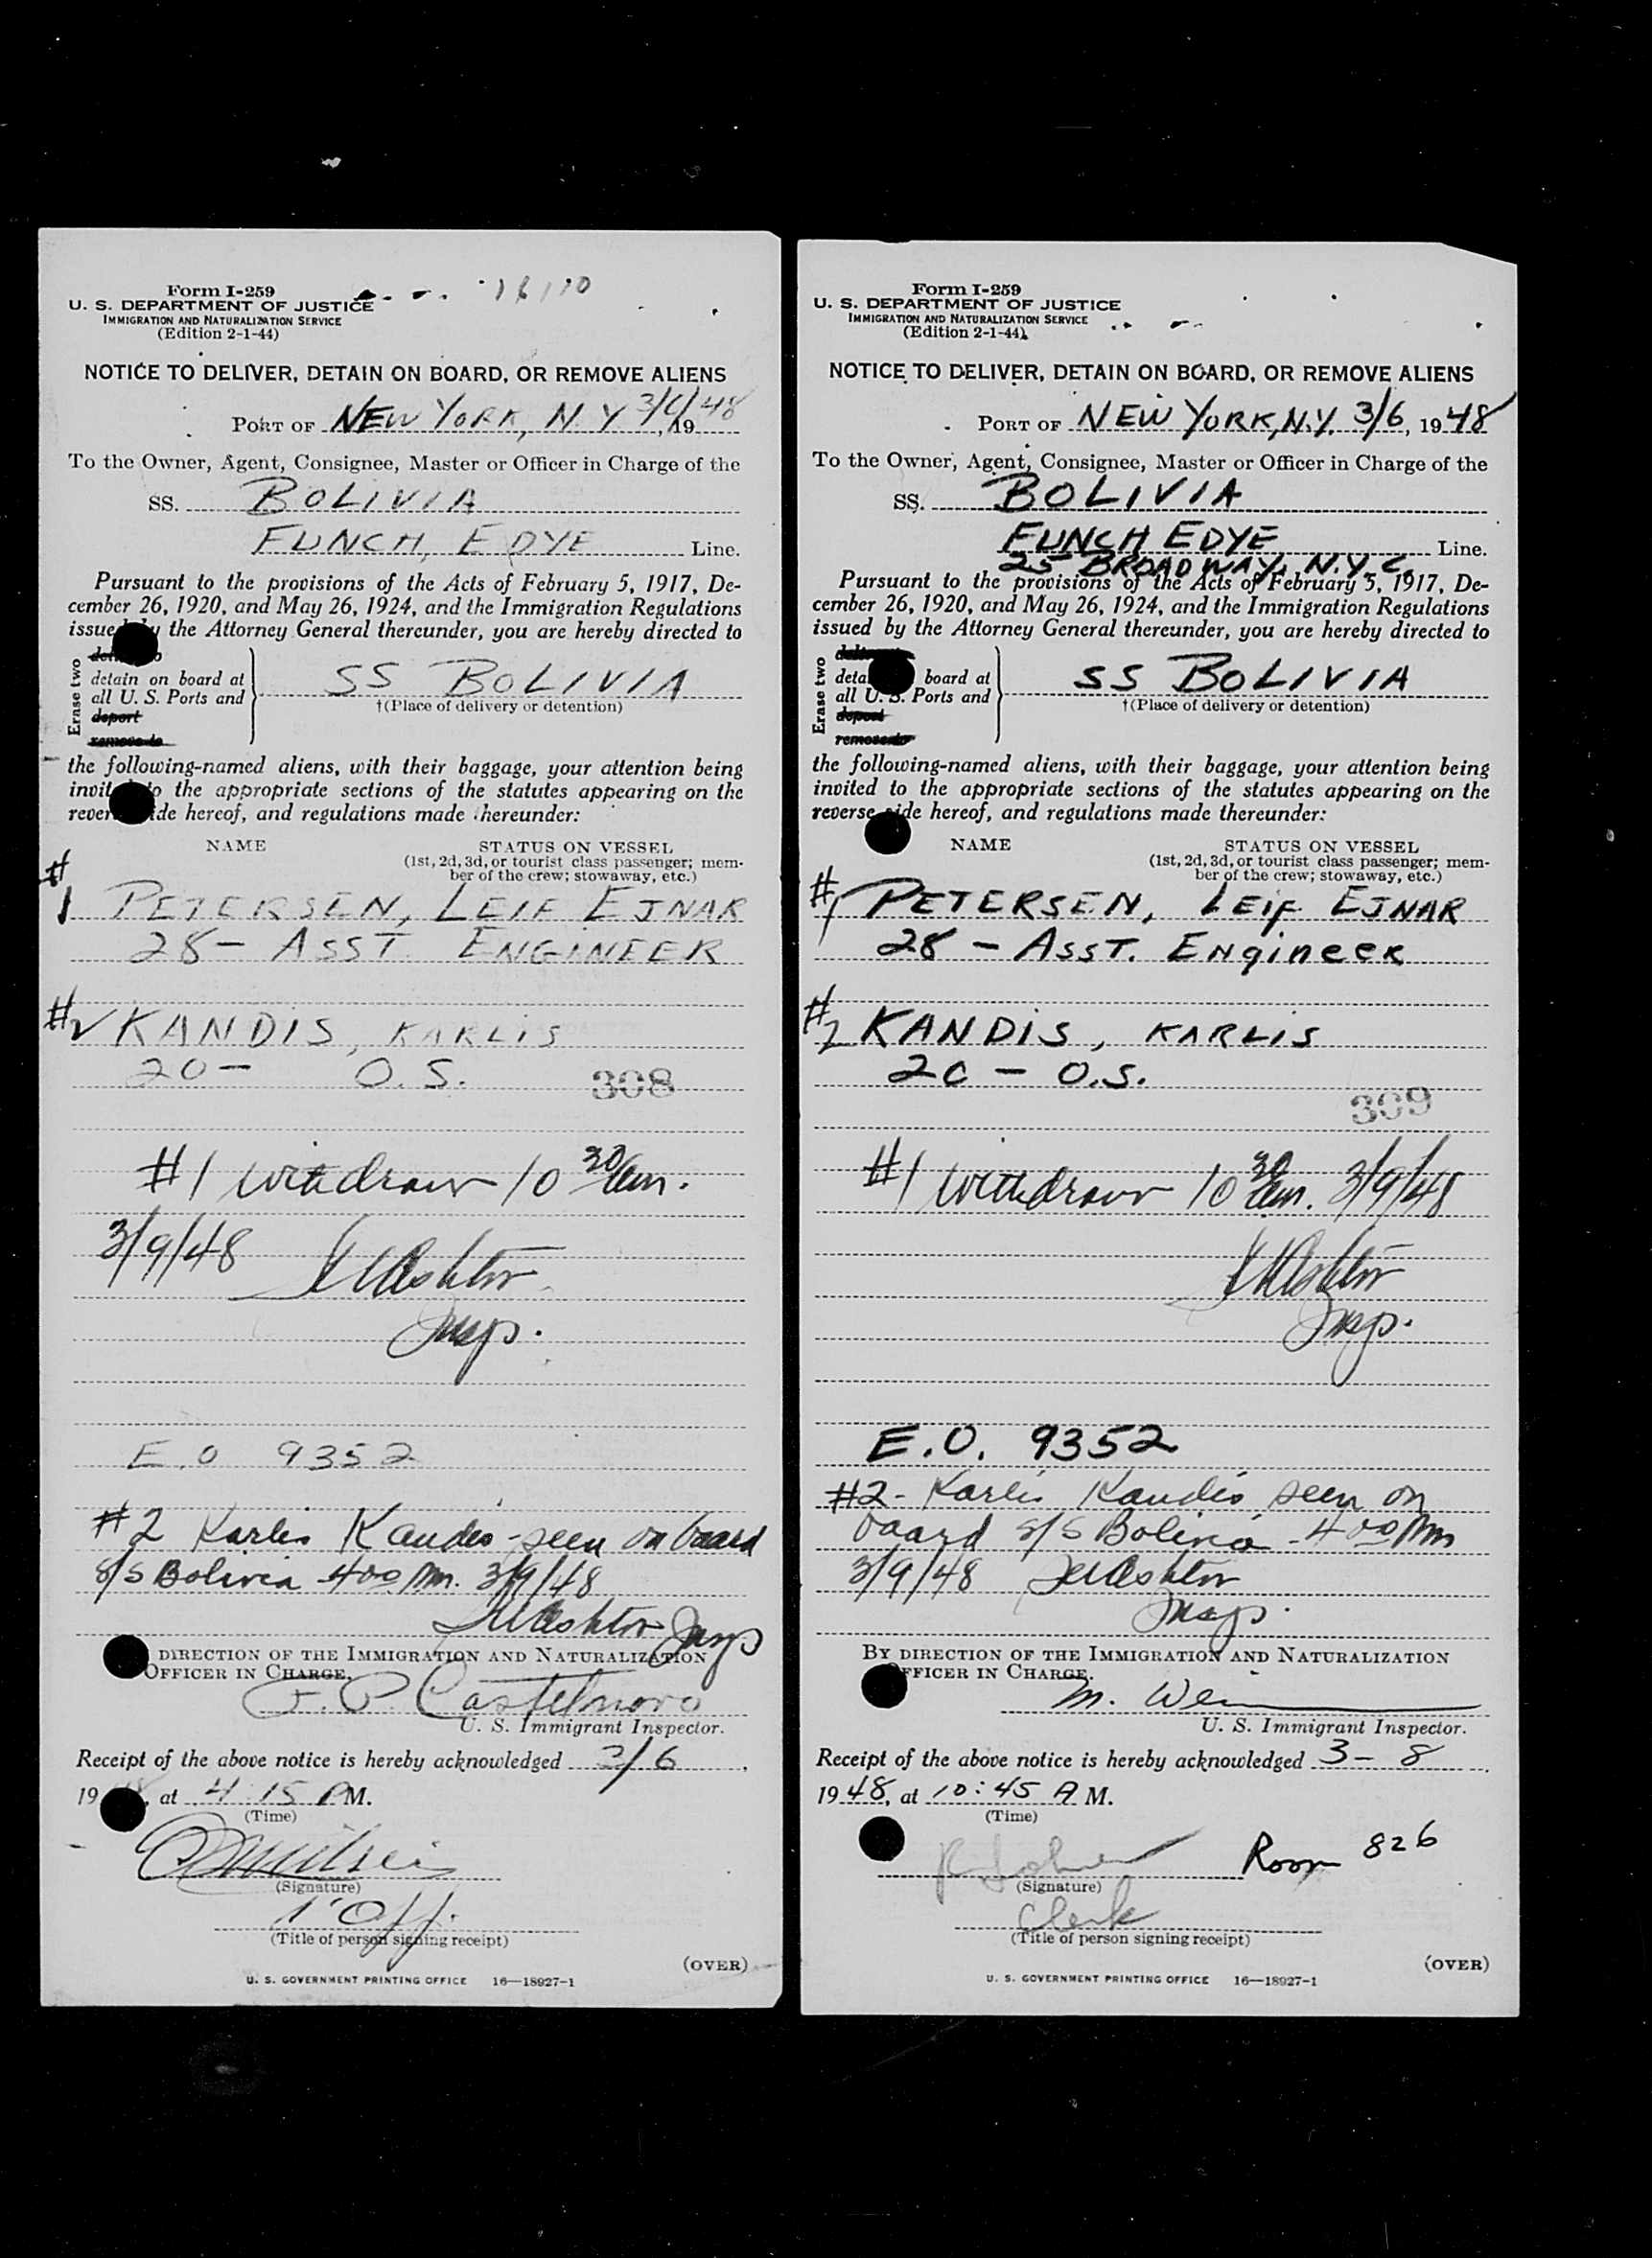 Form I-259
U. S. DEPARTMENT OF JUSTICE
IMMIGRATION AND NATURALIZATION SERVICE
(Edition 2-1-44)
NOTICE TO DELIVER, DETAIN ON BOARD, OR REMOVE ALIENS
PORT OF NEW YORK, N.Y 3/6/, 1948
To the Owner, Agent, Consignee, Master or Officer in Charge of the
SS. BOLIVIA
FUNCH, EDYE Line.
Pursuant to the provisions of the Acts of February 5, 1917, De-
cember 26, 1920, and May 26, 1924, and the Immigration Regulations
issued by the Attorney General thereunder, you are hereby directed to
Erase two
detain on board at
all U. S. Ports and
deport
remove to
SS BOLIVIA
†(Place of delivery or detention)
the following-named aliens, with their baggage, your attention being
invited to the appropriate sections of the statutes appearing on the
reverse side hereof, and regulations made thereunder:
NAME STATUS ON VESSEL
(1st, 2d, 3d, or tourist class passenger; mem-
ber of the crew; stowaway, etc.)
#1 PETERSEN, LEIF EJNAR
28 - ASST. ENGINEER
#2 KANDIS, KARLIS
20 - O.S. 308
#1 withdrawn 10 30 am.
3/9/48 Ashton
Insp.
E.O 9352
#2 Karlis Kandis - seen on board
S/S Bolivia 4 00 pm. 3/9/48
Ashton Insp
DIRECTION OF THE IMMIGRATION AND NATURALIZATION
OFFICER IN CHARGE.
F. P. Castelnovo
U. S. Immigrant Inspector.
Receipt of the above notice is hereby acknowledged 3/6,
19 , at 4:15 P M.
(Time)
(Signature)
1' Off.
(Title of person signing receipt)
(OVER)
U. S. GOVERNMENT PRINTING OFFICE 16—18927-1
Form I-259
U. S. DEPARTMENT OF JUSTICE
IMMIGRATION AND NATURALIZATION SERVICE
(Edition 2-1-44)
NOTICE TO DELIVER, DETAIN ON BOARD, OR REMOVE ALIENS
PORT OF NEW YORK, N.Y. 3/6, 1948
To the Owner, Agent, Consignee, Master or Officer in Charge of the
SS. BOLIVIA
FUNCH EDYE Line.
25 BROADWAY, N.Y.C.
Pursuant to the provisions of the Acts of February 5, 1917, De-
cember 26, 1920, and May 26, 1924, and the Immigration Regulations
issued by the Attorney General thereunder, you are hereby directed to
Erase two
deliver to
detain on board at
all U. S. Ports and
deport
remove to
SS BOLIVIA
†(Place of delivery or detention)
the following-named aliens, with their baggage, your attention being
invited to the appropriate sections of the statutes appearing on the
reverse side hereof, and regulations made thereunder:
NAME STATUS ON VESSEL
(1st, 2d, 3d, or tourist class passenger; mem-
ber of the crew; stowaway, etc.)
#1 PETERSEN, LEIF EJNAR
28 - ASST. Engineer
#2 KANDIS, KARLIS
20 - O.S.
309
#1 withdrawn 10 30 am. 3/9/48
Ashton
Insp.
E.O. 9352
#2 - Karlis Kandis seen on
board S/S Bolivia - 4 00 pm
3/9/48 Ashton
Insp.
BY DIRECTION OF THE IMMIGRATION AND NATURALIZATION
OFFICER IN CHARGE.
M. Wein
U. S. Immigrant Inspector.
Receipt of the above notice is hereby acknowledged 3-8,
1948, at 10:45 A M.
(Time)
Room 826
(Signature)
Clerk
(Title of person signing receipt)
(OVER)
U. S. GOVERNMENT PRINTING OFFICE 16—18927-1